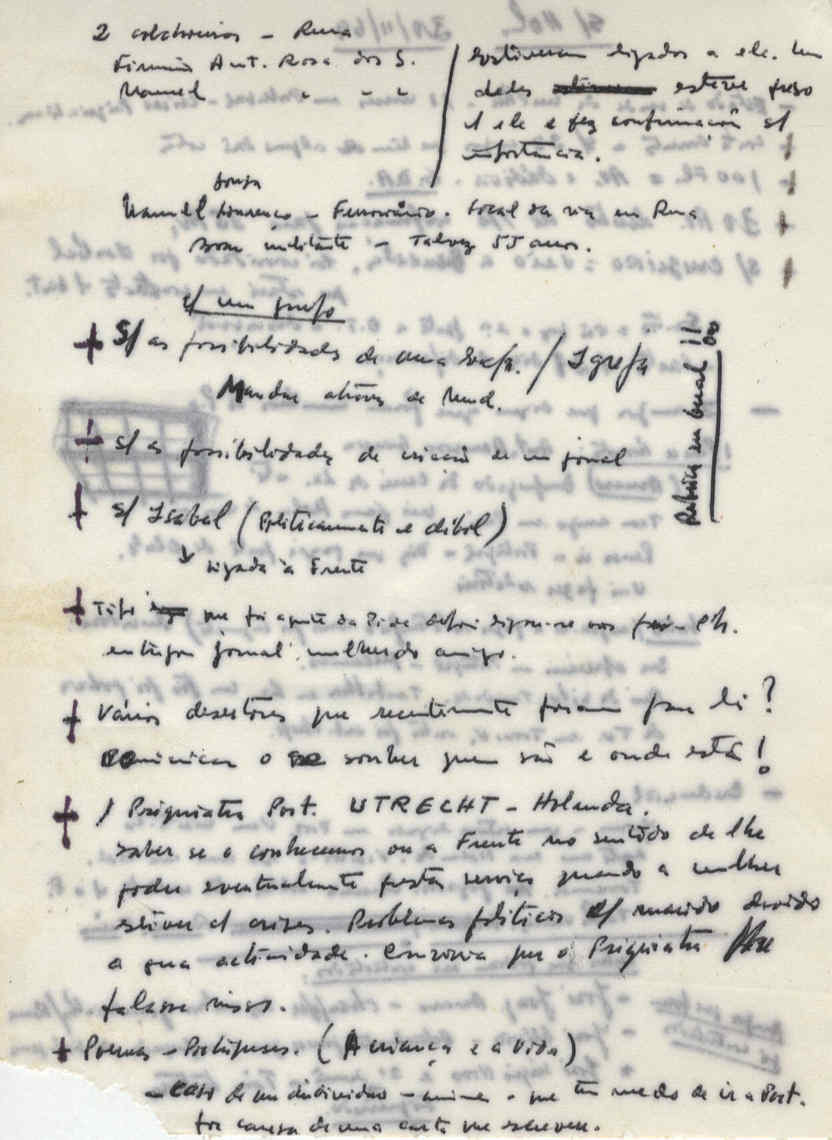 2 colchoeiros - Runa
Firmino Ant. Rosa dos S.
Manuel " " "
estiveram ligados a ele. Um
dedes esteve preso
c/ ele e fez confirmação s/
importância.
Manuel Lourenço - Ferroviário. Local da via em Runa
Bom militante - Talvez 55 anos.
s/ um grupo
+ S/ as possibilidades de uma / Igreja
Mandar através de
+ s/ as possibilidades de criação de um jornal
Rubrica em Bucal !!
+ s/ Isabel (Politicamente é débil)
↓ ligada à Frente
+ Tipo que foi agente da Pide
entregou jornal mulher do amigo.
+ Vários desertores que recentemente foram para lá?
Comunicar o souber quem são e onde está!
+ / Psiquiatra Port. UTRECHT - Holanda.
Saber se o conhecemos ou a Frente no sentido de lhe
poder eventualmente prestar serviço quando a mulher
estiver c/ crises. Problemas políticos c/ marido devido
a sua actividade. Convinha que o Psiquiatra
falasse nisso.
+ Poemas - Portugueses. (A criança e a vida)
- caso de um indivíduo - - que tem medo de ir a Port.
por causa de uma carta que escreveu.